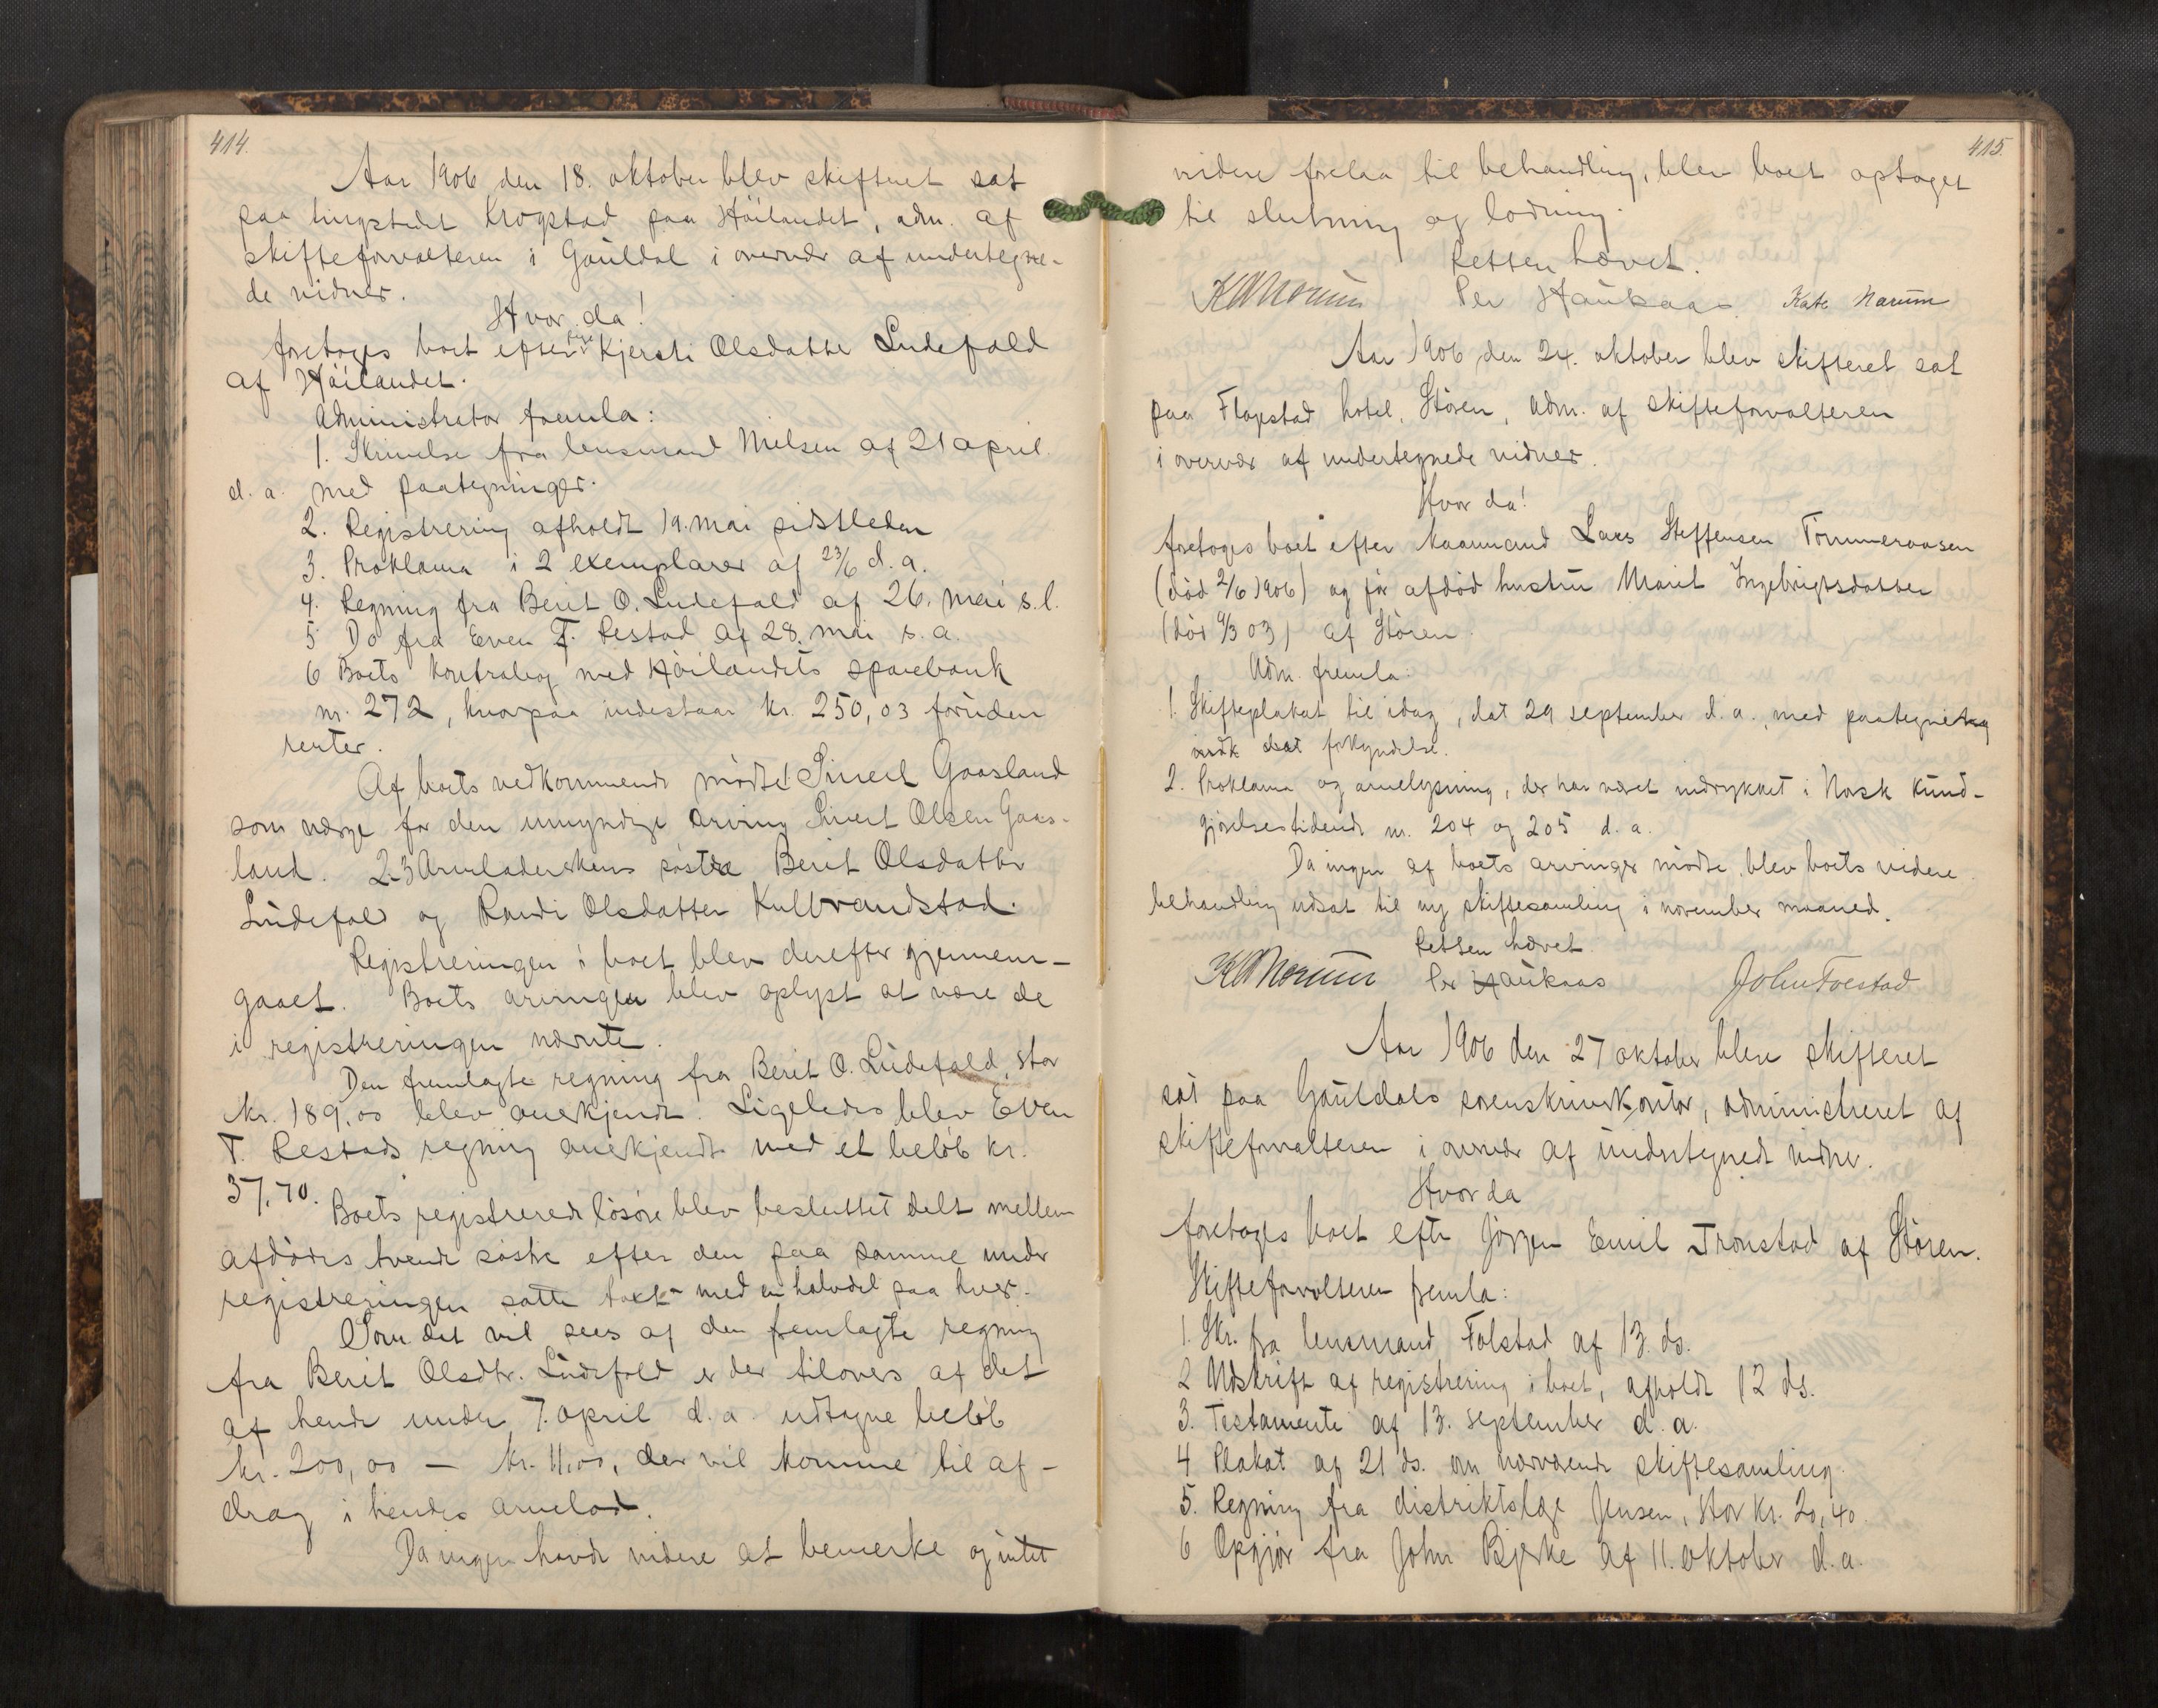 414.
Aar 1906 den 18. oktober blev skifteret sat
paa tingstedet Krogstad paa Höilandet, adm. af
skifteforvalteren i Gauldal i overvær af undertegne-
de vidner.
Hvor da!
foretoges boet efter pige Kjersti Olsdatter Ludefald
af Höilandet.
Administrator fremla:
1. Skrivelse fra lensmand Nielsen af 21 april
d. a. med paategninger.
2. Registrering afholdt 19. mai sidstleden
3. Proklama i 2 exemplarer af 23/6 d. a.
4. Regning fra Berit O. Ludefald af 26. mai s. l.
5 Do fra Even T. Restad af 28. mai s. a.
6 Boets kontrabog med Höilandets sparebank
nr. 272, hvorpaa indestaar kr. 250,03 foruden
renter.
Af boets vedkommende mödte 1 Sivert Gaasland
som værge for den umyndige arving Sivert Olsen Gaas-
land. 2-3 Arveladerskens söstre Berit Olsdatter
Ludefald og Randi Olsdatter Kulbrandstad.
Registreringen i boet blev derefter gjennem-
gaaet. Boets arvinger blev oplyst at være de
i registreringen nævnte.
Den fremlagte regning fra Berit O. Ludefald, stor
kr. 189,00 blev anerkjendt. Ligeledes blev Even
T. Restads regning anerkjendt med et belöb kr.
37,70.
Boets registrerede lösöre blev besluttet delt mellem
afdödes tvende söstre efter den paa samme under
registreringen satte takst med en halvdel paa hver.
Som det vil sees af den fremlagte regning
fra Berit Olsdtr. Ludefald er der tilovers af det
af hende under 7. april d. a. udtagne belöb
kr. 200,00 — kr. 11,00, der vil komme til af-
drag i hendes arvelod.
Da ingen havde videre at bemerke og intet
415.
videre forelaa til behandling, blev boet optaget
til slutning og lodning.
Retten hævet.
KANorum Per Haukaas Kate Narum
Aar 1906 den 24. oktober blev skifteret sat
paa Flagstad hotel, Stören, adm. af skifteforvalteren
i overvær af undertegnede vidner.
Hvor da!
foretoges boet efter kaarmand Lars Steffensen Tömmeraasen
(död 2/6 1906) og för afdöd hustru Marit Ingebrigtsdatter
(död 9/3 03) af Stören.
Adm. fremla:
1. Skifteplakat til idag, dat 29 september d. a., med paategning
forkyndelse.
2. Proklama og arvelysning, der har været indrykket i Norsk Kund-
gjörelsestidende nr. 204 og 205 d. a.
Da ingen af boets arvinger mödte, blev boets videre
behandling udsat til ny skiftesamling i november maaned.
Retten hævet.
KANorum Per Haukaas John Foestad
Aar 1906 den 27 oktober blev skifteret
sat paa Gauldals sorenskriverkontor, administreret af
skifteforvalteren i overvær af undertegnede vidner.
Hvor da
foretoges boet efter Jörgen Emil Tronstad af Stören.
Skifteforvalteren fremla:
1. Skr. fra lensmand Folstad af 13. ds.
2 Udskrift af registrering i boet, afholdt 12 ds.
3. Testamente af 13. september d. a.
4 Plakat af 21 ds. om nærværende skiftesamling.
5. Regning fra distriktslæge Jensen, stor kr. 20,40.
6 Opgjör fra John Bjerke af 11. oktober d. a.